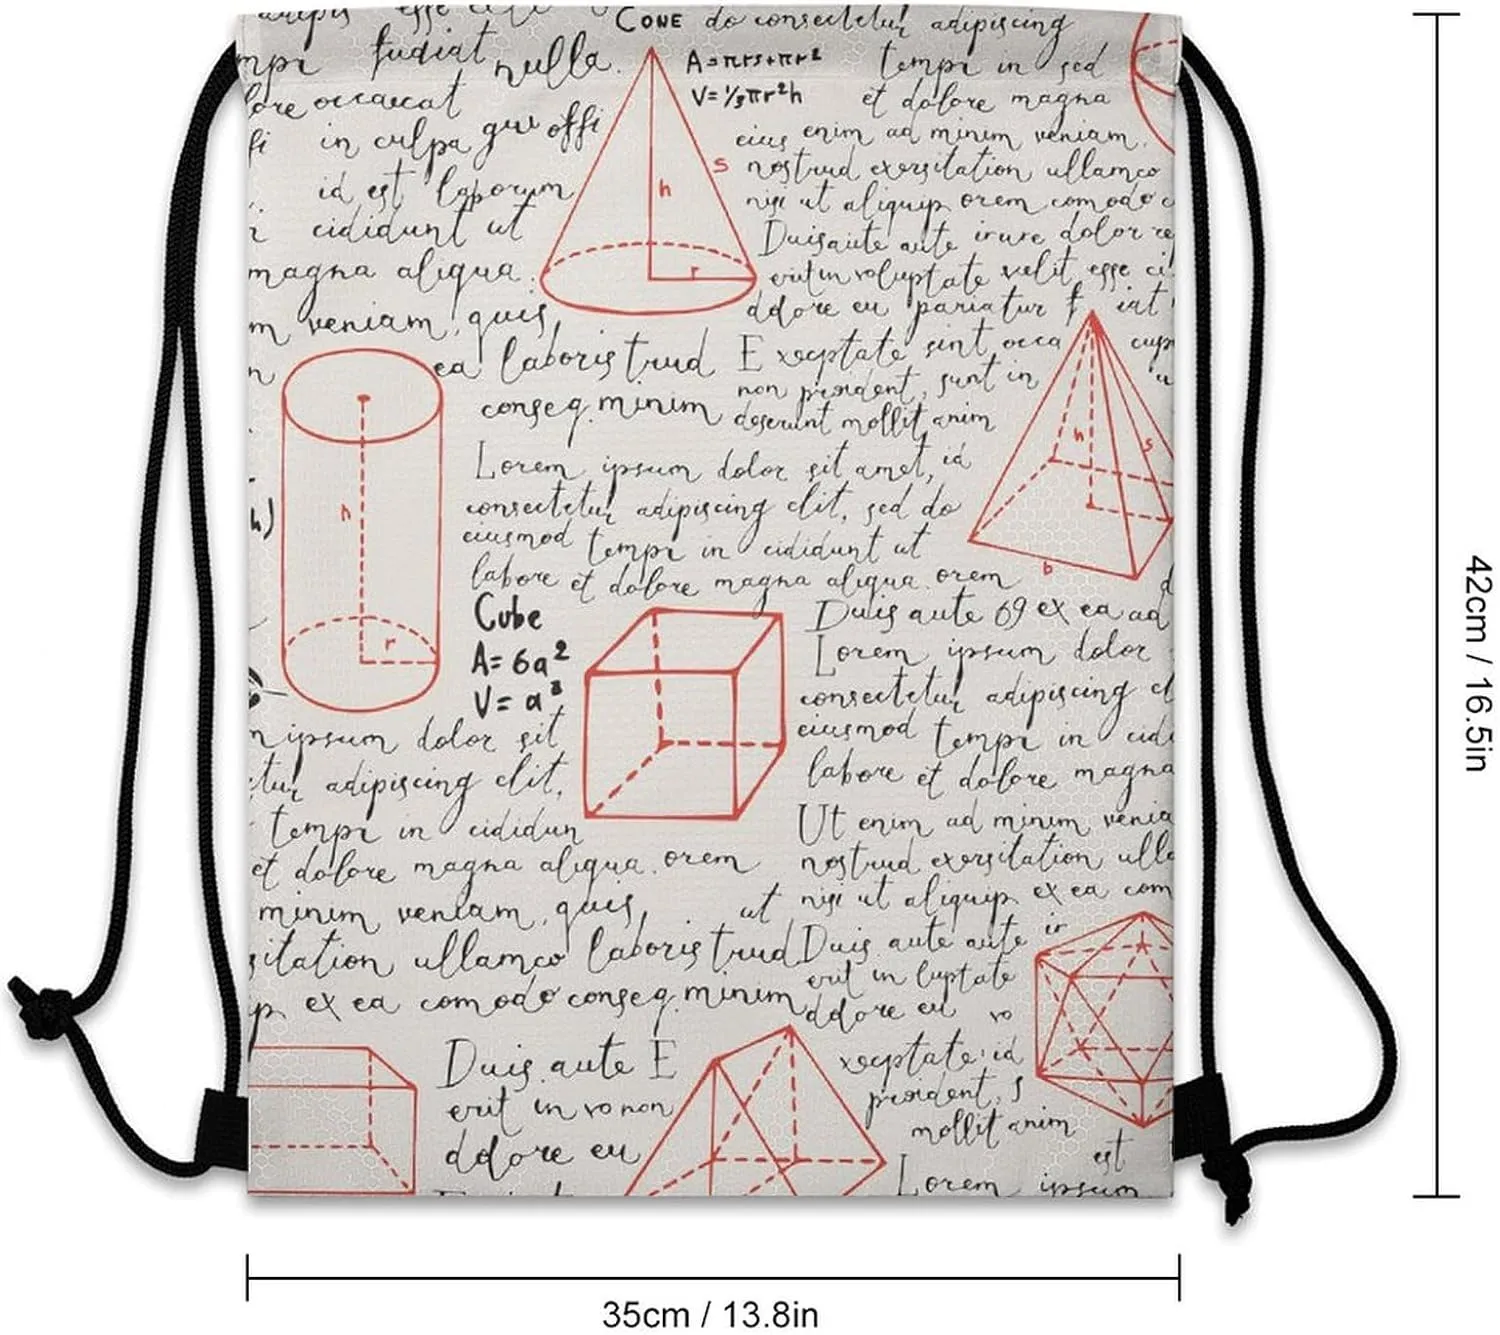 esse
CONE do consectetur adipiscing
fudiat nulla.
A=πrs+πr²
V=⅓πr²h
tempr in sed
et dolore magna
occaecat
in culpa qui offi
id est laborum
cididunt ut
magna aliqua.
m veniam, quis,
eius enim ad minim veniam.
nostrud exersitation ullamco
nisi ut aliquip orem comodo c
Duisaute aute irure dolor re
erit in voluptate velit esse ci
ddore eu pariatur f iat
h
s
r
ea laboris trud
conseq. minim
E xceptate sint occa cup
non proident, sunt in
deserunt mollit anim
h
s
b
h
r
h)
Lorem ipsum dolor sit amet, id
consectetur adipiscing elit, sed do
eiusmod tempr in cididunt ut
labore et dolore magna aliqua. orem
Cube
A= 6a²
V= a³
Duis aute 69 ex ea ad
Lorem ipsum dolor
consectetur adipiscing el
eiusmod tempr in cidi
labore et dolore magna
n ipsum dolor sit
tur adipiscing elit,
tempr in cididun
et dolore magna aliqua. orem
minim veniam, quis, ut
sitation ullamco laboris trud
ip ex ea comodo conseq. minim
Ut enim ad minim venia
nostrud exersitation ulla
nisi ut aliquip ex ea com
Duis aute aute ir
erit in luptate
ddore eu vo
Duis aute E
erit in vo non
ddore eu
xceptate id
proident, s
mollit anim
est
Lorem ipsum
42cm / 16.5in
35cm / 13.8in